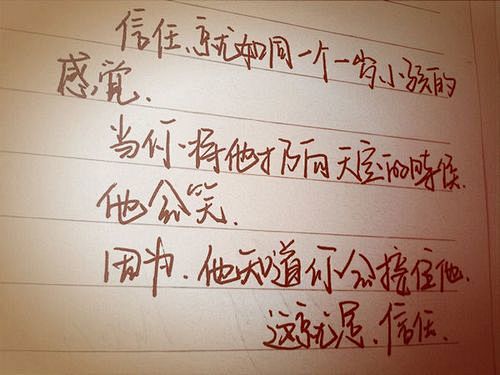 信任,就如同一个一岁小孩的
感觉.
当你将他扔向天空的时候.
他会笑.
因为.他知道你会接住他.
这就是.信任.